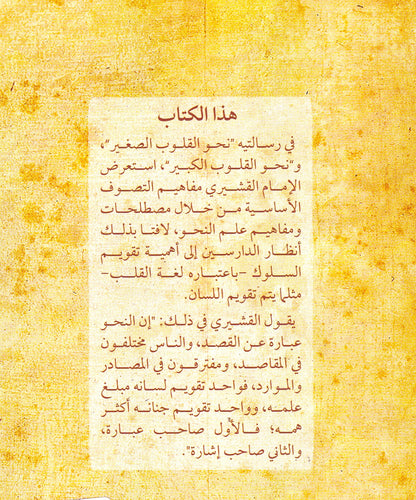 هذا الكتاب
في رسالتيه "نحو القلوب الصغير"،
و"نحو القلوب الكبير"، استعرض
الإمام القشيري مفاهيم التصوف
الأساسية من خلال مصطلحات
ومفاهيم علم النحو، لافتا بذلك
أنظار الدارسين إلى أهمية تقويم
السلوك -باعتباره لغة القلب-
مثلما يتم تقويم اللسان.
يقول القشيري في ذلك: "إن النحو
عبارة عن القصد، والناس مختلفون
في المقاصد، ومفترقون في المصادر
والموارد، فواحد تقويم لسانه مبلغ
علمه، وواحد تقويم جنانَه أكثر
همه؛ فالأول صاحب عبارة،
والثاني صاحب إشارة".